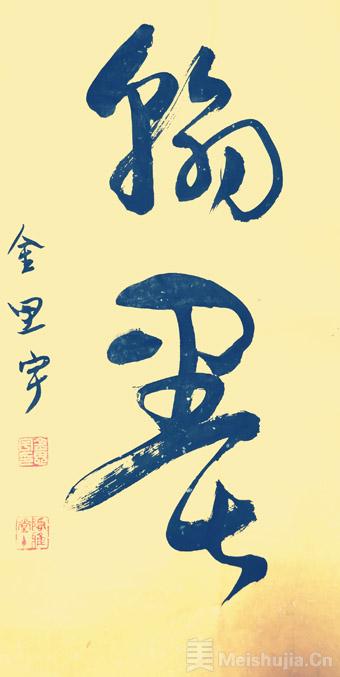 翰墨
金思宇
美 Meishujia.Cn